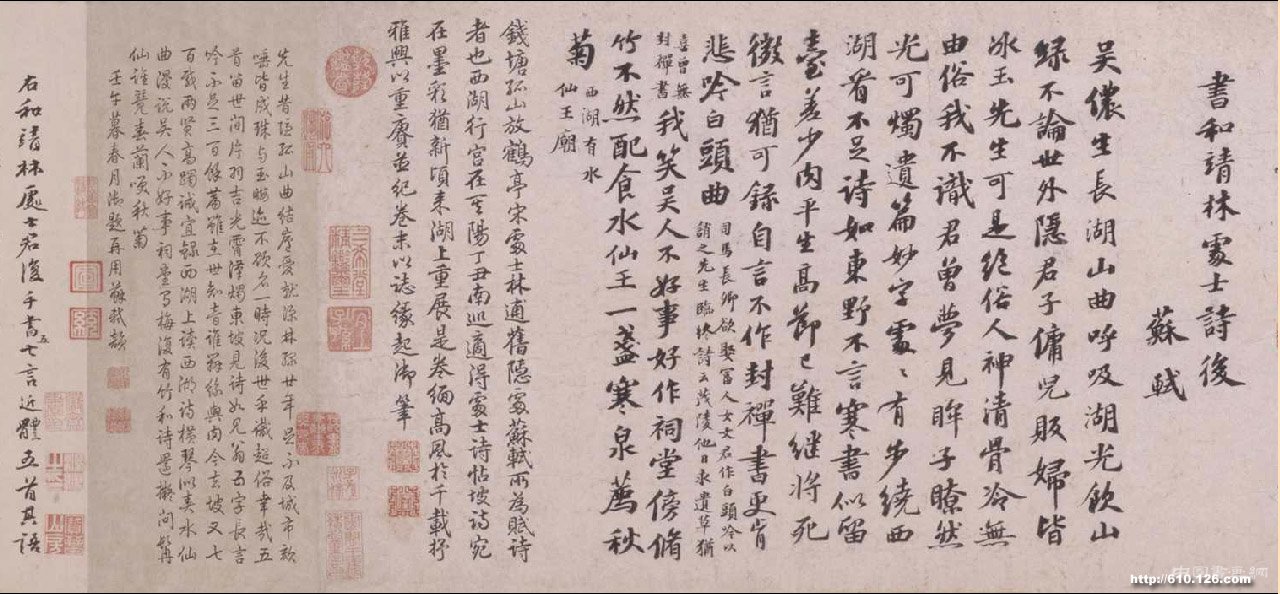 書和靖林處士詩後
蘇軾
吳儂生長湖山曲呼吸湖光飲山
緑不論世外隱君子傭兒販婦皆
冰玉先生可是絕俗人神清骨冷無
由俗我不識君曾夢見眸子瞭然
光可燭遺篇妙字處〻有步繞西
湖看不足詩如東野不言寒書似留
臺差少肉平生高節已難繼將死
微言猶可録自言不作封禪書更肯
悲吟白頭曲
司馬長卿欲娶富人女文君作白頭吟以
誚之先生臨終詩云茂陵他日求遺草猶
喜曾無
封禪書
我笑吳人不好事好作祠堂傍脩
竹不然配食水仙王一盞寒泉薦秋
菊
西湖有水
仙王廟
錢塘孤山放鶴亭宋處士林逋舊隱處蘇軾所為賦詩
者也西湖行宮在其陽丁丑南巡適得處士詩帖坡詩宛
在墨彩猶新頃來湖上重展是卷緬高風於千載抒
雅興以重賡並紀卷末以誌緣起御筆
先生昔隱孤山曲結廬愛就林緑廿年足不及城市欬
唾皆成珠與玉一時況復世識超俗幸哉五
留世間片羽吉光燭東坡見詩如見翁五字長言
吟不足三百餘篇雖在世知音誰今去坡又七
百載兩賢高躅誠宜録西湖上讀西湖詩橫琴似奏水仙
曲漫説吳人不好事祠堂梅復有竹和詩還擬問髯
仙誰競春蘭嘆秋菊
壬午暮春月御題再用蘇軾韻
右和靖林處士君復手書七言近體五首其語
http://610.126.com/